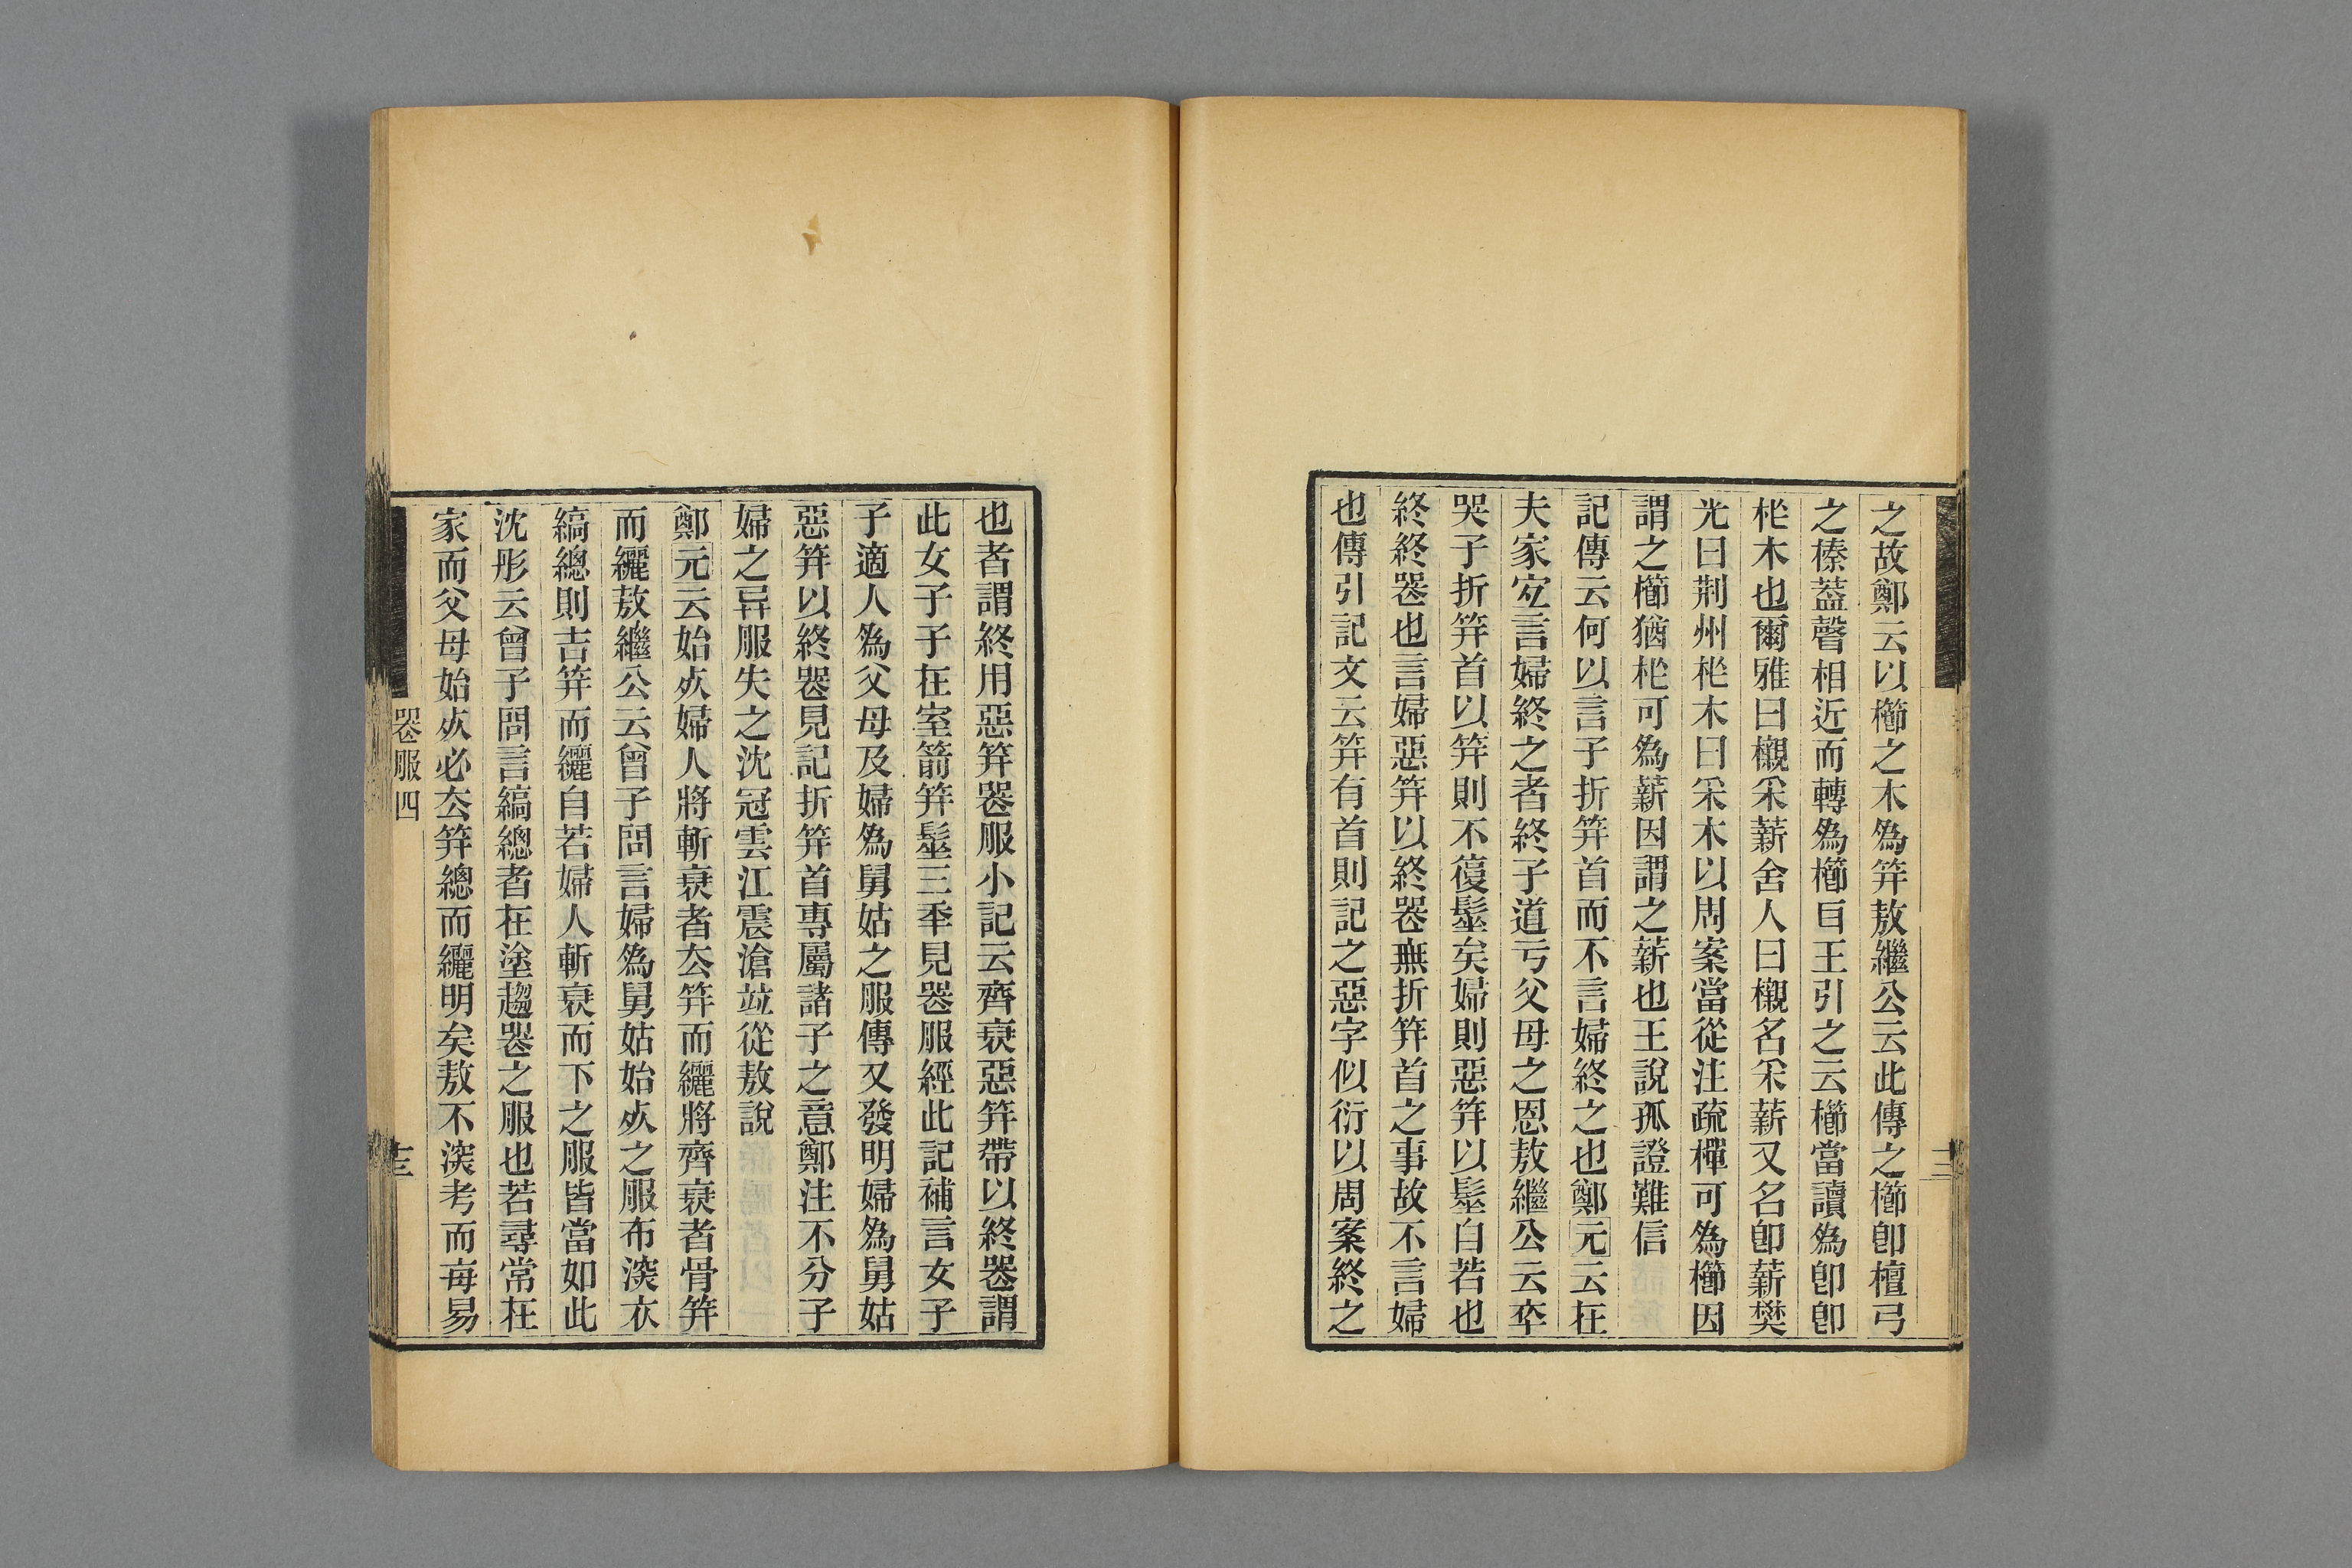 之故鄭云以櫛之木爲笄敖繼公云此傳之櫛卽檀弓
之榛蓋聲相近而轉爲櫛㠯王引之云櫛當讀爲卽卽
柂木也爾雅曰櫬采薪舍人曰櫬名采薪又名卽薪樊
光曰荆州柂木曰采木以周案當從注疏樿可爲櫛因
謂之櫛猶柂可爲薪因謂之薪也王說孤證難信
記傳云何以言子折笄首而不言婦終之也鄭元云在
夫家宐言婦終之者終子道亏父母之恩敖繼公云卒
哭子折笄首以笄則不復髽矣婦則惡笄以髽自若也
終終器也言婦惡笄以終器無折笄首之事故不言婦
也傳引記文云笄有首則記之惡字似衍以周案終之
也者謂終用惡笄器服小記云齊衰惡笄帶以終器謂
此女子子在室箭笄髽三秊見器服經此記補言女子
子適人爲父母及婦爲舅姑之服傳又發明婦爲舅姑
惡笄以終器見記折笄首專屬諸子之意鄭注不分子
婦之异服失之沈冠雲江震滄竝從敖說
鄭元云始𣦸婦人將斬衰者厺笄而纚將齊衰者骨笄
而纚敖繼公云曾子問言婦爲舅姑始𣦸之服布深衣
縞總則吉笄而纚自若婦人斬衰而下之服皆當如此
沈彤云曾子問言縞總者在塗趨器之服也若尋常在
家而父母始𣦸必厺笄總而纚明矣敖不深考而每易
器服四
十三